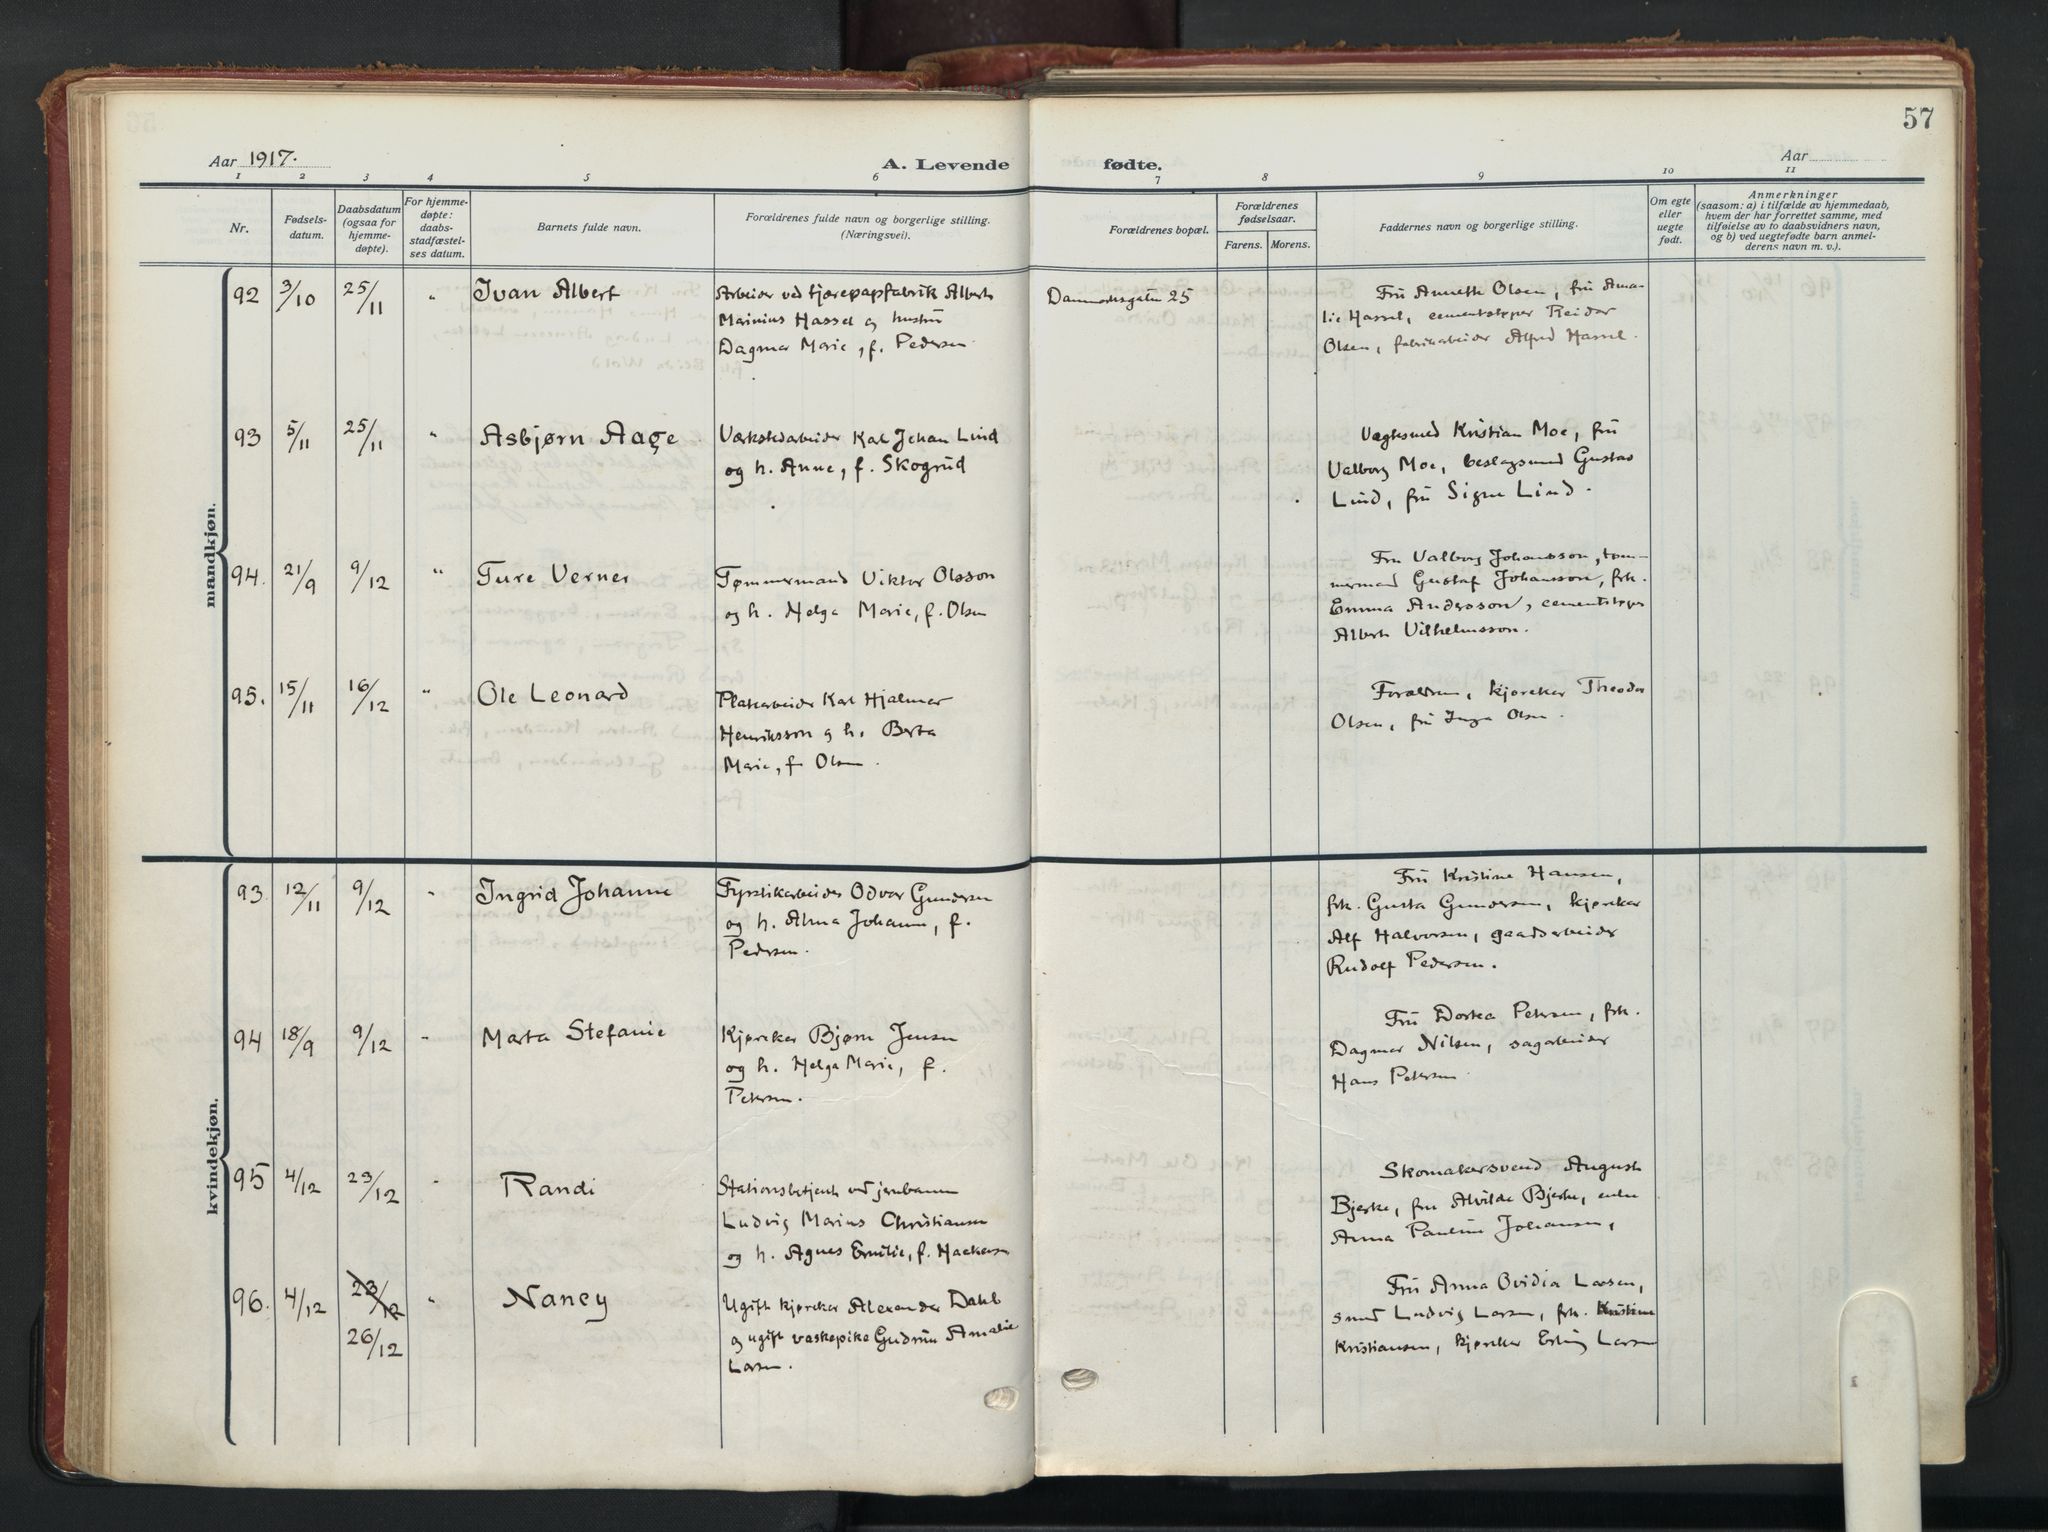 57
Aar 1917.
A. Levende fødte.
Aar
1 2 3 4 5 6 7 8 9 10 11
Nr.
Fødsels-
datum.
Daabsdatum
(ogsaa for
hjemme-
døpte).
For hjemme-
døpte:
daabs-
stadfæstel-
ses datum.
Barnets fulde navn.
Forældrenes fulde navn og borgerlige stilling.
(Næringsvei).
Forældrenes bopæl.
Forældrenes
fødselsaar.
Farens. Morens.
Faddernes navn og borgerlige stilling.
Om egte
eller
uegte
født.
Anmerkninger
(saasom: a) i tilfælde av hjemmedaab,
hvem der har forrettet samme, med
tilføielse av to daabsvidners navn,
og b) ved uegtefødte barn anmel-
derens navn m. v.).
mandkjøn.
92 3/10 25/11 " Ivan Albert
Arbeider ved tjærepapfabrik Albert
Marinius Hassel og hustru
Dagmar Marie, f. Pedersen
Danmarksgaten 25
Fru Annette Olsen, fru Ama-
lie Hassel, cementstøper Reidar
Olsen, fabrikarbeider Alfred Hassel.
93 5/11 25/11 " Asbjørn Aage
Værkstedarbeider Karl Johan Lind
og h. Anne, f. Skogrud
Vægtsmed Kristian Moe, fru
Valborg Moe, beslagsmed Gustav
Lind, fru Signe Lind.
94. 21/9 9/12 " Ture Verner
Tømmermand Viktor Olsson
og h. Helga Marie, f. Olsen
Fru Valborg Johansson, tøm-
mermand Gustaf Johansson, frk.
Emma Andersson, cementstøper
Albert Vilhelmsson.
95. 15/11 16/12 " Ole Leonard
Platearbeider Karl Hjalmar
Henriksson og h. Berta
Marie, f. Olsen.
Forældrene, kjøreker Theodor
Olsen, fru Inga Olsen.
kvindekjøn.
93. 12/11 9/12 " Ingrid Johanne
Fyrstikarbeider Odvar Gundersen
og h. Alma Johanne, f.
Pedersen.
Fru Kristine Hansen,
frk. Gusta Gundersen, kjøreker
Alf Halvorsen, gaardsarbeider
Rudolf Pedersen.
94 18/9 9/12 " Marta Stefanie
Kjøreker Bjørn Jensen
og h. Helga Marie, f.
Petersen.
Fru Dortea Petersen, frk.
Dagmar Nilsen, sagarbeider
Hans Petersen
95 4/12 23/12 " Randi
Stationsbetjent ved jernbanen
Ludvig Marius Christiansen
og h. Agnes Emilie, f.
Skomakersvend August
Bjerke, fru Alvilde Bjerke, enke
Anna Pauline Johansen,
96. 4/12 23/12 " Nancy
26/12
Ugift kjøreker Alexander Dahl
og ugift vaskepike Gudrun Amalie
Larsen.
Fru Anna Ovidia Larsen,
smed Ludvig Larsen, frk. Kristine
Kristiansen, kjøreker Erling Larsen